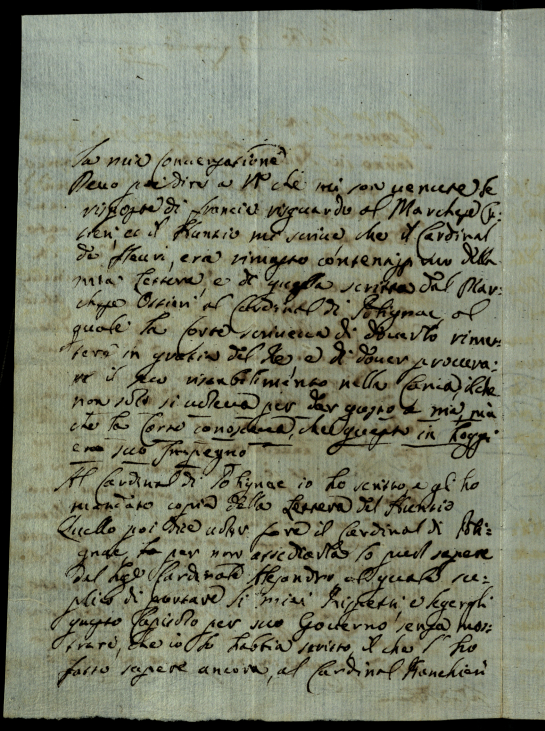 la mia conversatione
Devo poi dire a V. che mi son venute le
risposte di francia risguardo al Marchese
il Nuntio mi scrive che il Cardinal
de fleuri, era rimasto contentissimo della
mia lettera, e di quella scritta dal Mar-
chese Ossieri al Cardinal di Polignac, al
quale la Corte scriveva di doverlo rimet-
tere in gratia del Re, e di dover procura-
re il suo ristabilimento nella Carica, il che
non solo si voleva per dar gusto a me, ma
che la Corte conosceva, che questo in hoggi
era suo Impegno
Al Cardinal di Polignac io ho scritto e gli ho
mandato copia della lettera del Nuntio
Quello poi che voler fare il Cardinal di Poli-
gnac, per non lo può sapere
dal Cardinale Alesandro, al quale su-
plico di portare li miei rispetti, e legergli
questo Capitolo per suo Governo, senza mos-
trare, che io lo habbia scritto, il che ho
fatto sapere ancora, al Cardinal Banchieri